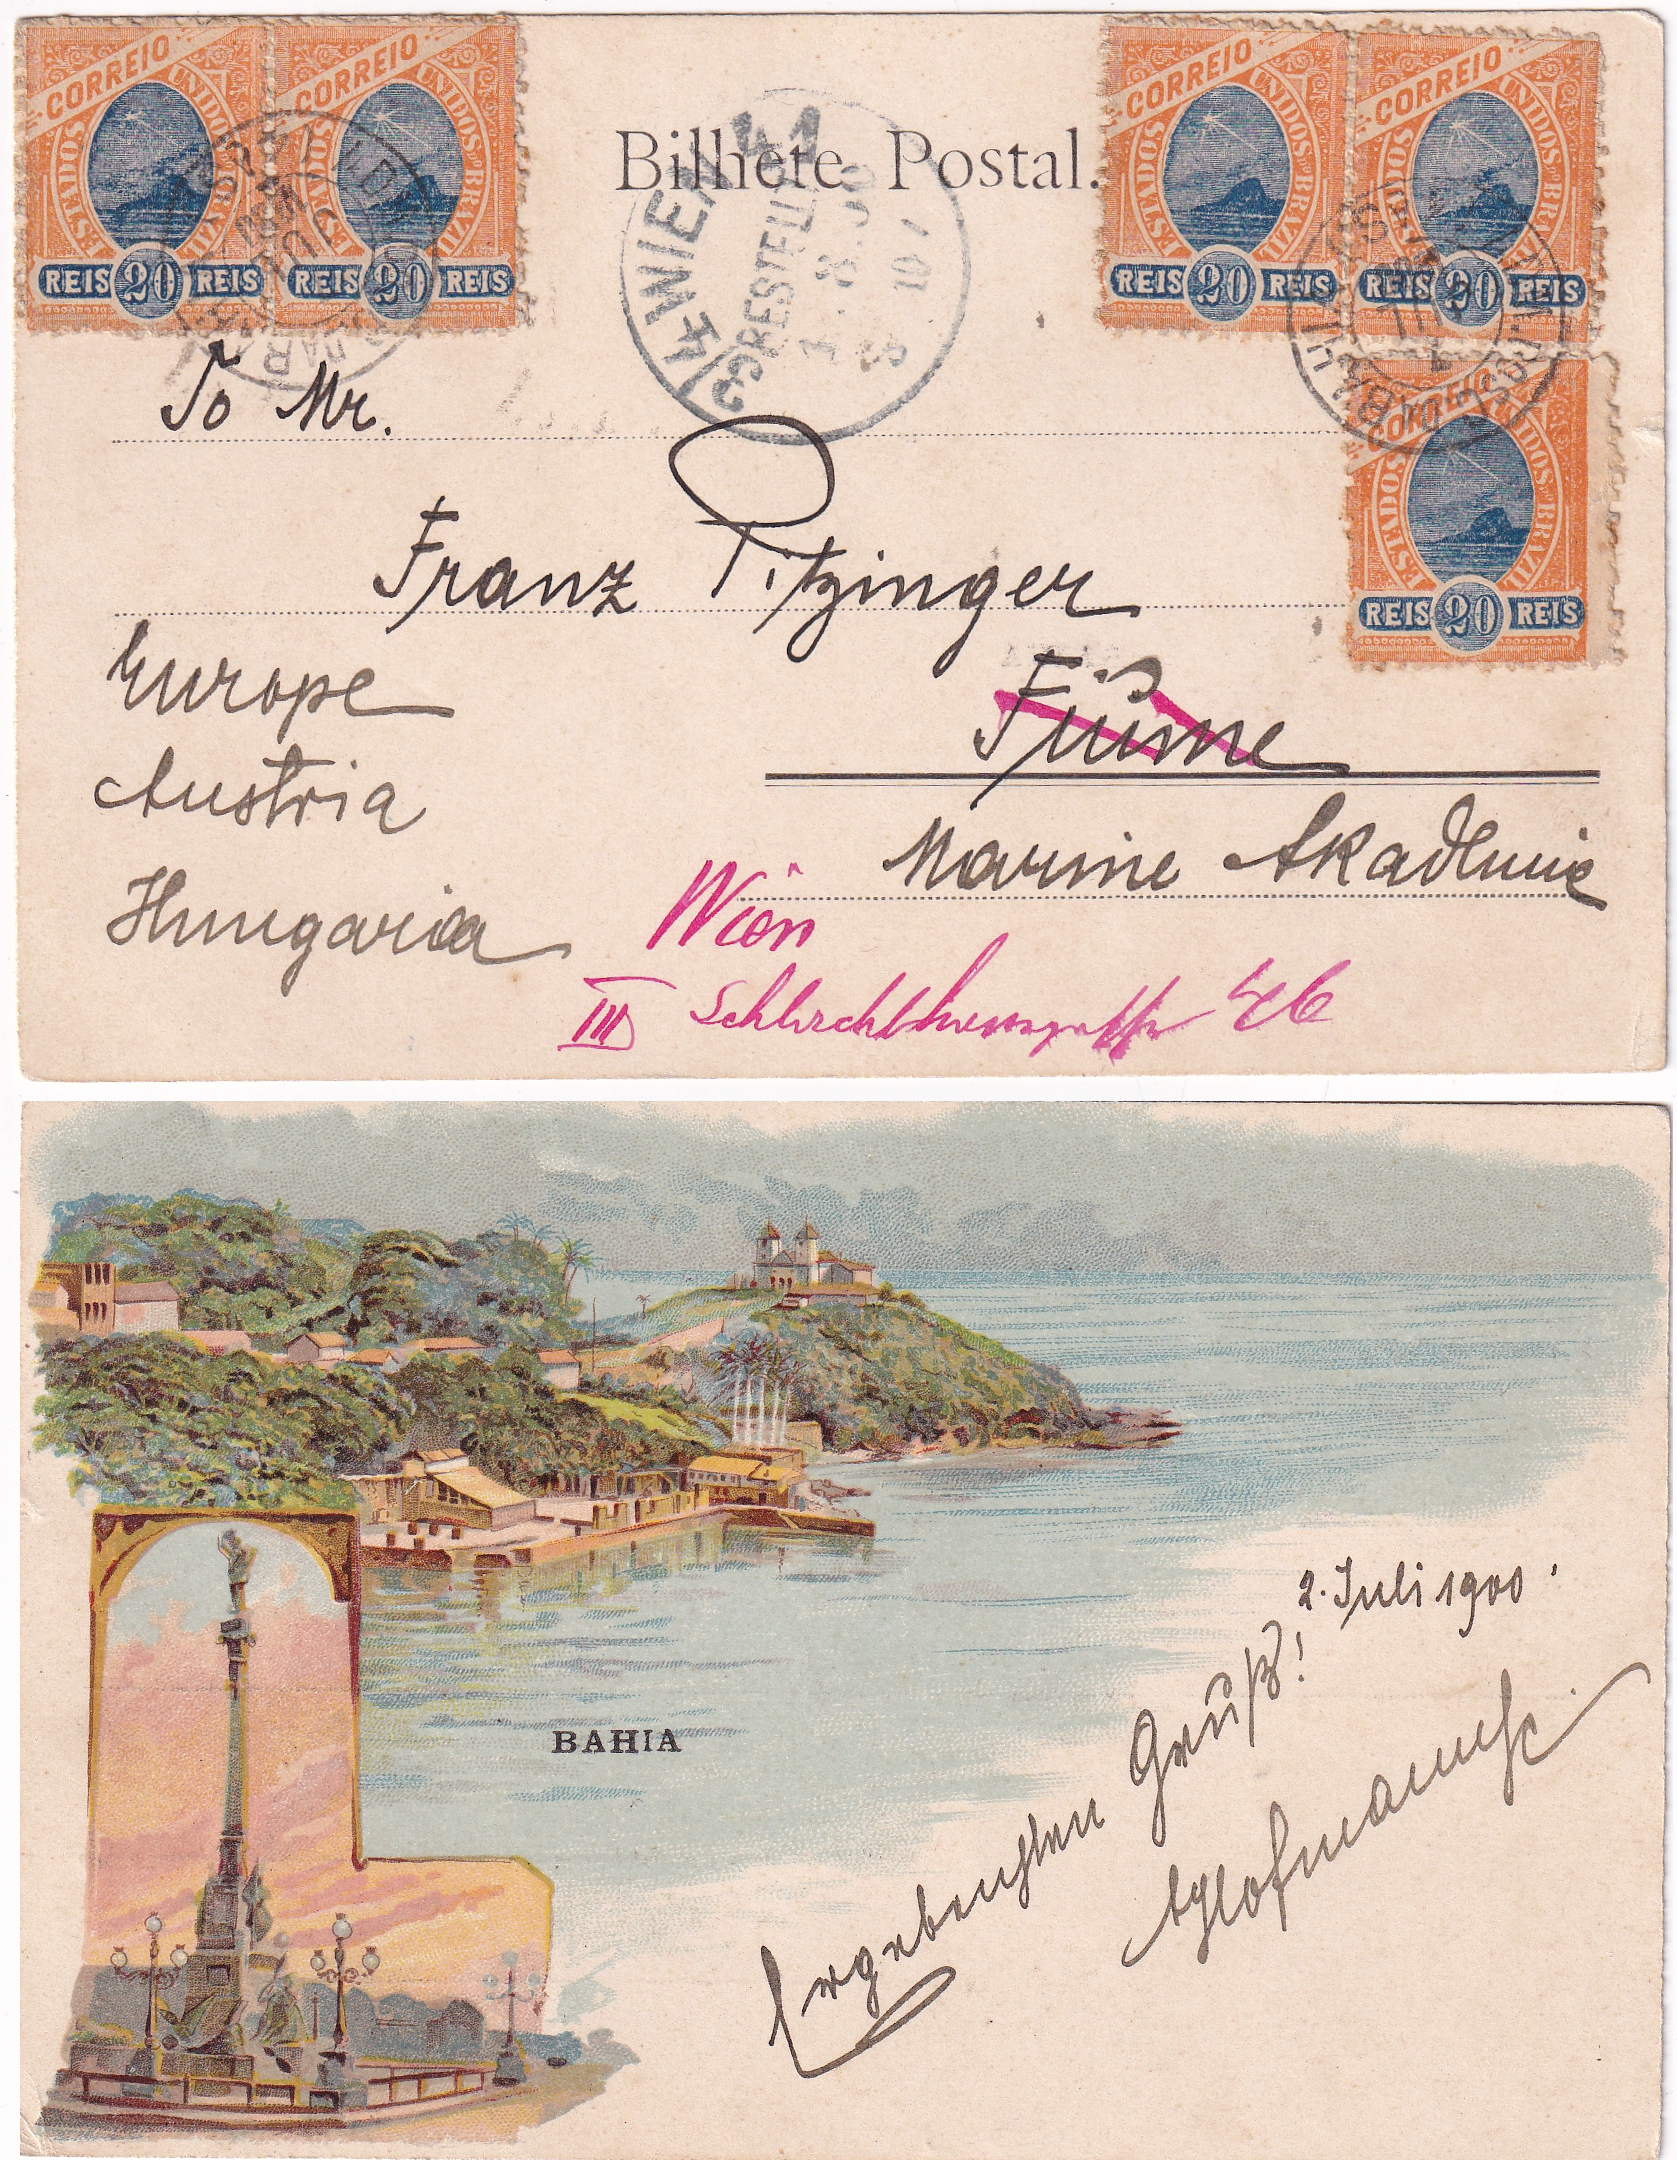 CORREIO
ESTADOS UNIDOS DO BRAZIL
REIS 20 REIS
CORREIO
ESTADOS UNIDOS DO BRAZIL
REIS 20 REIS
Bilhete Postal.
3/4 WIEN 41
BESTELLT
8.00
CORREIO
ESTADOS UNIDOS DO BRAZIL
REIS 20 REIS
CORREIO
ESTADOS UNIDOS DO BRAZIL
REIS 20 REIS
CORREIO
ESTADOS UNIDOS DO BRAZIL
REIS 20 REIS
To Mr.
Franz Pitzinger
Europe
Fiume
Austria
Marine Akademie
Hungaria
Wien
III
BAHIA
2. Juli 1900.
Ergebensten Gruß!